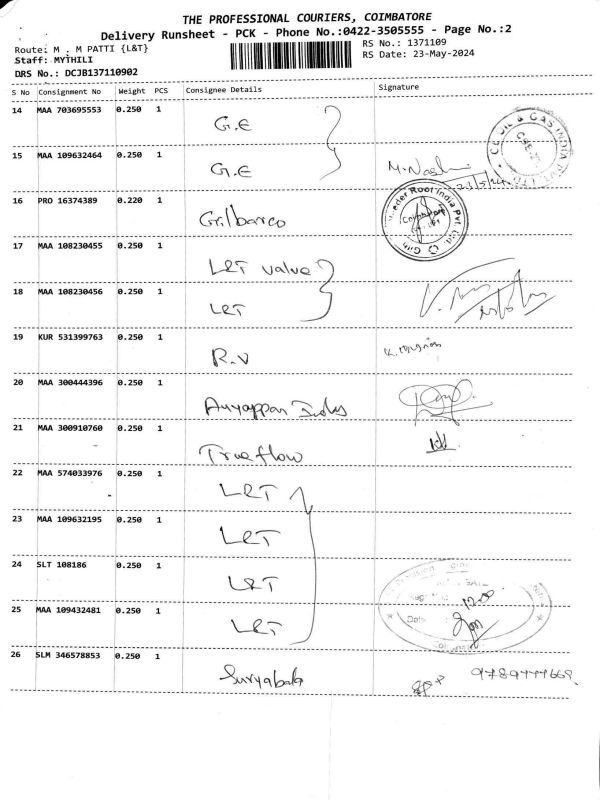 THE PROFESSIONAL COURIERS, COIMBATORE
Delivery Runsheet - PCK - Phone No.:0422-3505555 - Page No.:2
Route: M . M PATTI {L&T}
RS No.: 1371109
Staff: MYTHILI
RS Date: 23-May-2024
DRS No.: DCJB137110902
S No Consignment No Weight PCS Consignee Details Signature
14 MAA 703695553 0.250 1 G.E
15 MAA 109632464 0.250 1 G.E
16 PRO 16374389 0.220 1 Gilbarco
17 MAA 108230455 0.250 1 L&T Valve
18 MAA 108230456 0.250 1 L&T
19 KUR 531399763 0.250 1 R.V
20 MAA 300444396 0.250 1 Ayyappan
21 MAA 300910760 0.250 1 True flow
22 MAA 574033976 0.250 1 L&T
23 MAA 109632195 0.250 1 L&T
24 SLT 108186 0.250 1 L&T
25 MAA 109432481 0.250 1 L&T
26 SLM 346578853 0.250 1 Suryabala